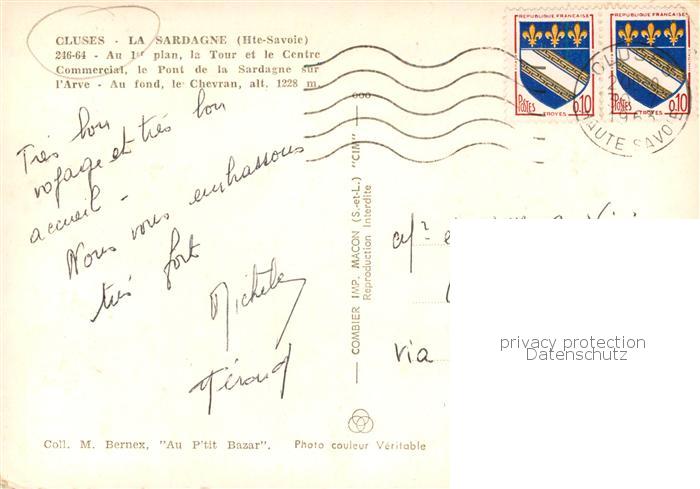 CLUSES - LA SARDAGNE (Hte-Savoie)
246-64 - Au 1er plan, la Tour et le Centre
Commercial, le Pont de la Sardagne sur
l'Arve - Au fond, le Chevran, alt. 1228 m.
Très bon
voyage et très bon
accueil -
Nous vous embrassons
très fort
Michèle
COMBIER IMP. MACON (S.-et-L.) "CIM"
Reproduction Interdite
REPUBLIQUE FRANÇAISE
POSTES
0,10
TROYES
REPUBLIQUE FRANÇAISE
POSTES
0,10
TROYES
HAUTE SAVOIE
via
privacy protection
Datenschutz
Coll. M. Bernex, "Au P'tit Bazar".
Photo couleur Véritable